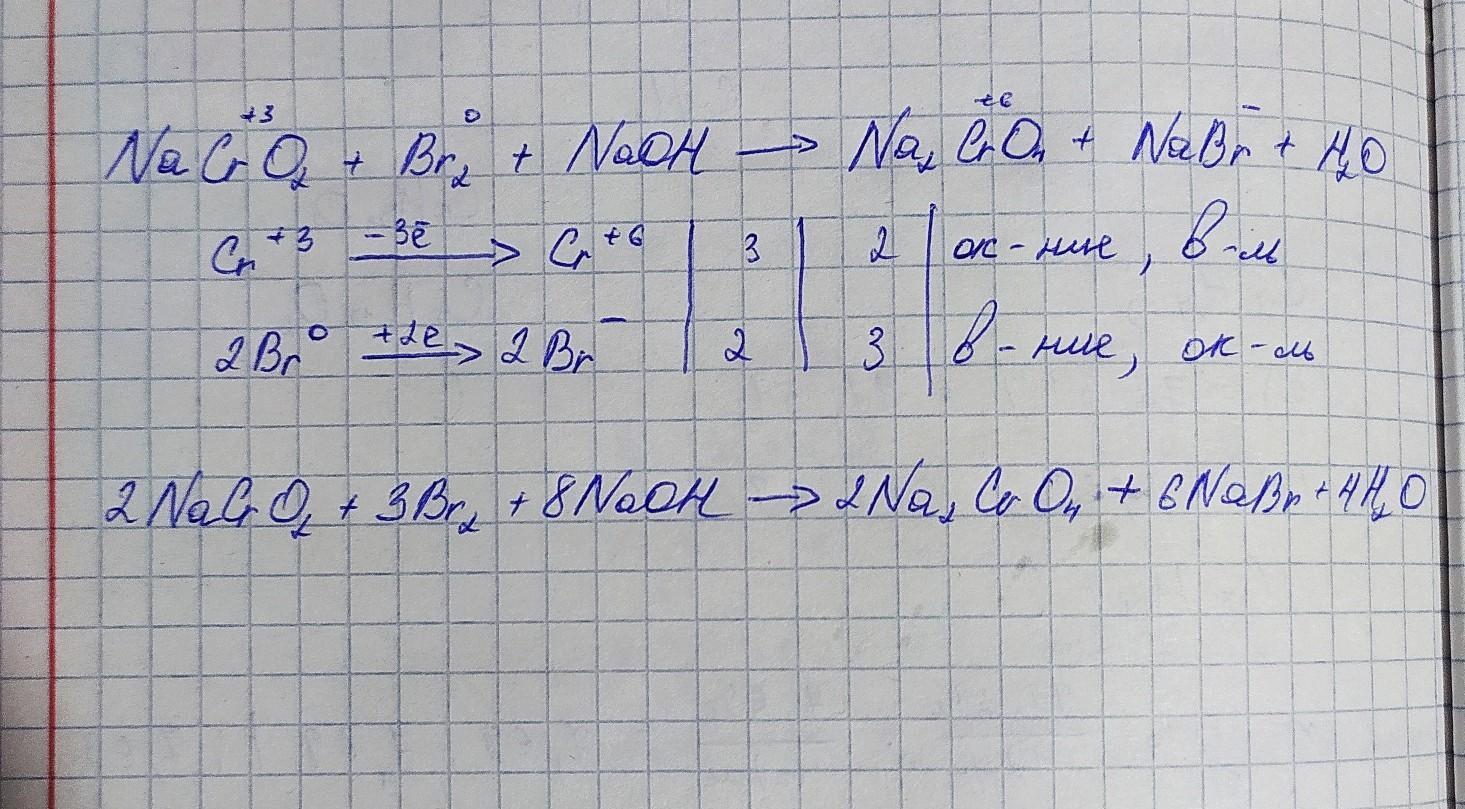 NaCr⁺³O₂ + Br₂⁰ + NaOH → Na₂Cr⁺⁶O₄ + NaBr⁻ + H₂O
Cr⁺³ −3ē → Cr⁺⁶ | 3 | 2 | ок-ние, в-ль
2Br⁰ +2ē → 2Br⁻ | 2 | 3 | в-ние, ок-ль
2NaCrO₂ + 3Br₂ + 8NaOH → 2Na₂CrO₄ + 6NaBr + 4H₂O